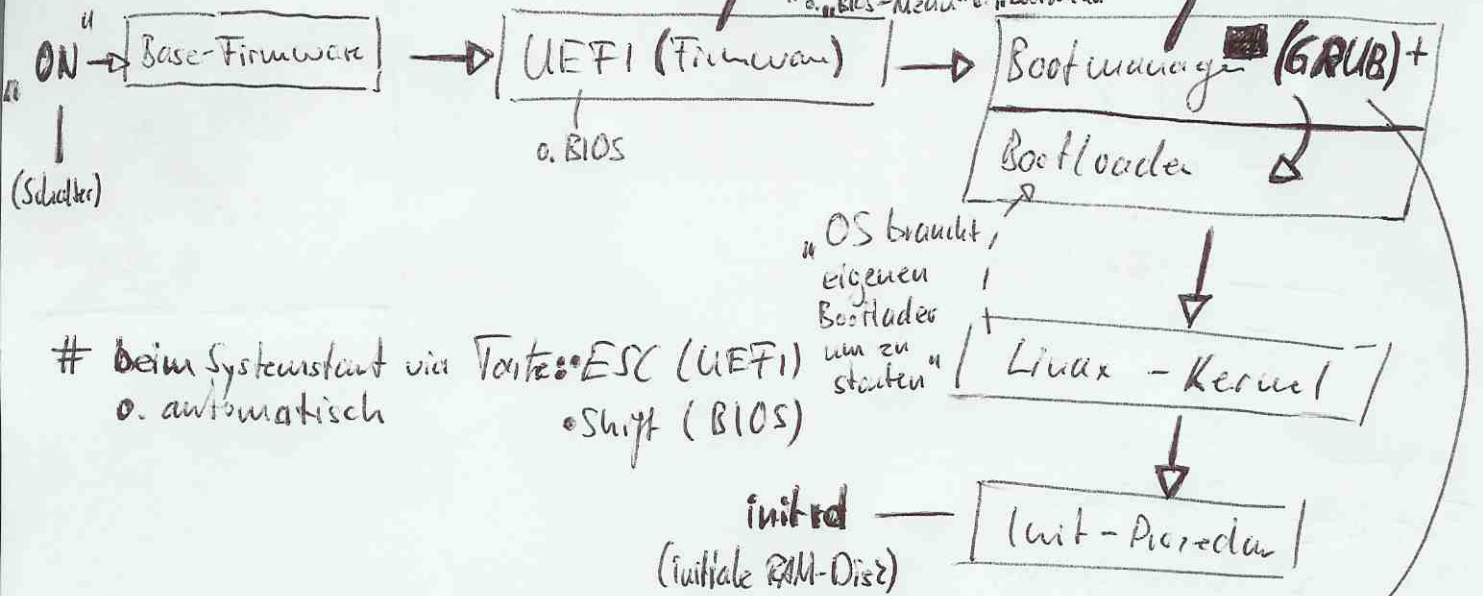 o. „BIOS-Menü" o.
„ON" Base-Firmware UEFI (Firmware) Bootmanager (GRUB) +
(Schalter) o. BIOS Bootloader
„OS braucht
eigenen
Bootlader
um zu
starten"
# beim Systemstart via Taste: • ESC (UEFI)
o. automatisch • Shift (BIOS)
Linux - Kernel
initrd Init - Prozedur
(initiale RAM-Disk)